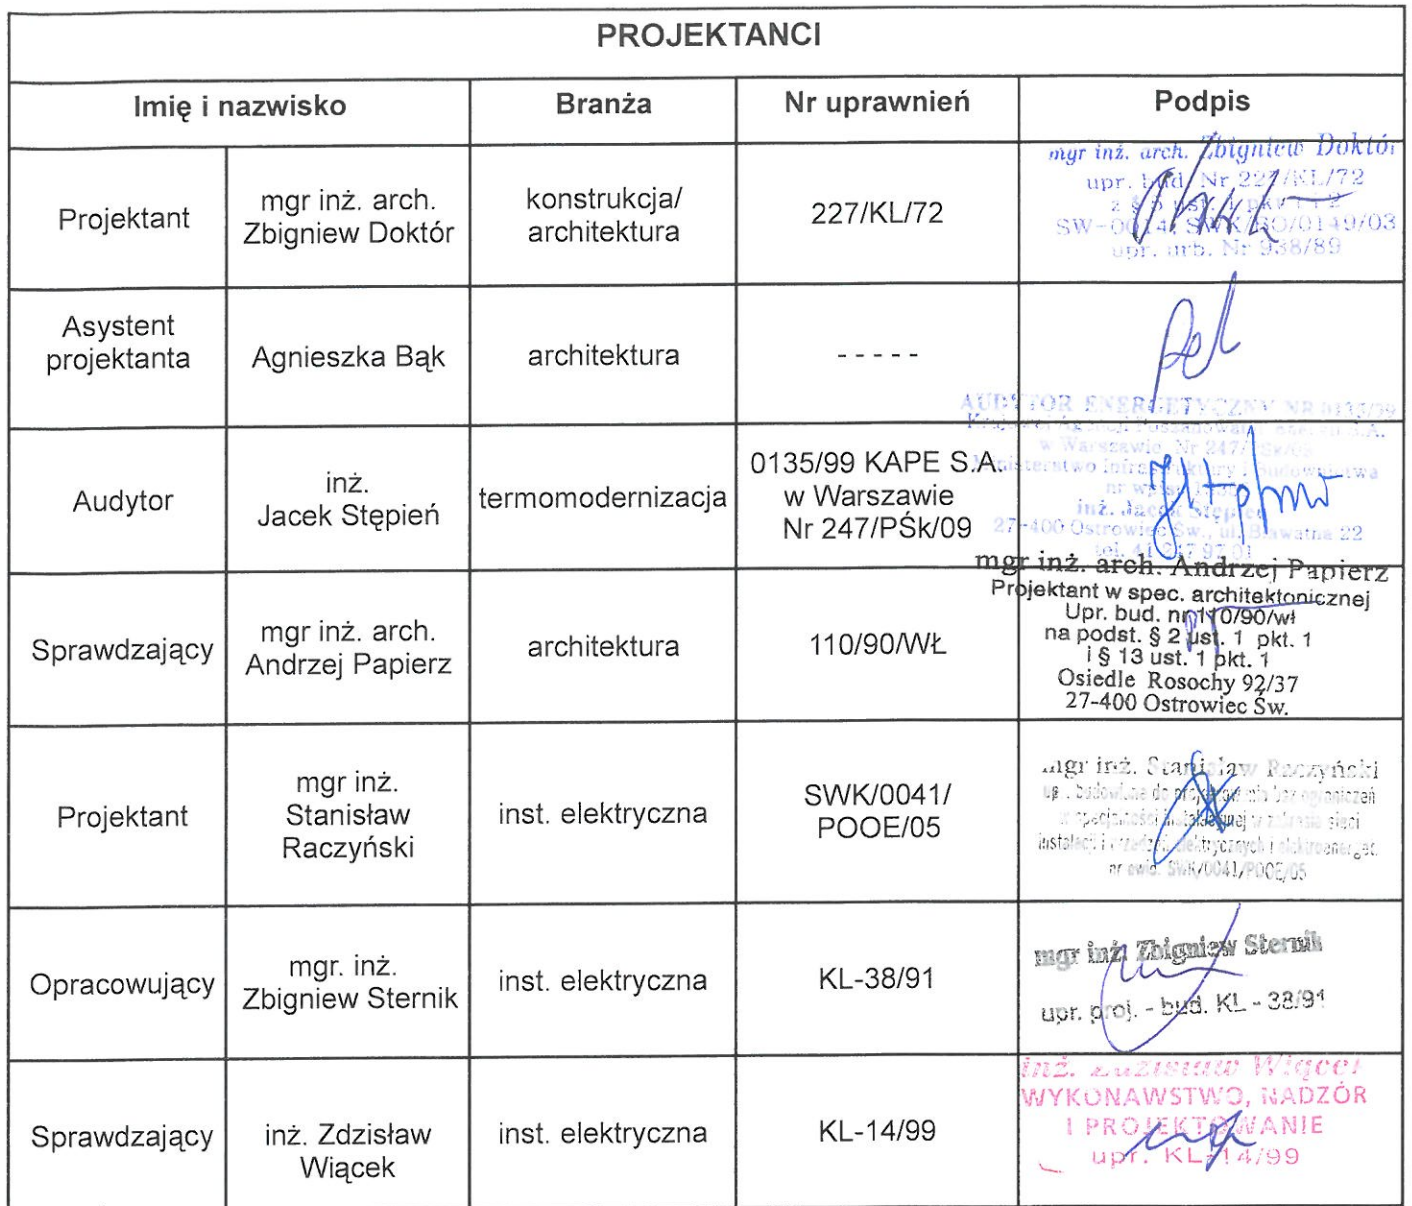 PROJEKTANCI
Imię i nazwisko
Branża
Nr uprawnień
Podpis
Projektant
mgr inż. arch.
Zbigniew Doktór
konstrukcja/
architektura
227/KL/72
mgr inż. arch. Zbigniew Doktór
upr. bud. Nr 227/KL/72
SW-0014, SWK/BO/0149/03
upr. urb. Nr 938/89
Asystent
projektanta
Agnieszka Bąk
architektura
- - - - -
Audytor
inż.
Jacek Stępień
termomodernizacja
0135/99 KAPE S.A.
w Warszawie
Nr 247/PŚk/09
AUDYTOR ENERGETYCZNY NR 0135/99
w Warszawie, Nr 247/
Ministerstwo Infrastruktury i Budownictwa
inż. Jacek Stępień
27-400 Ostrowiec Św., ul. Bławatna 22
tel. 41 247 97 01
Sprawdzający
mgr inż. arch.
Andrzej Papierz
architektura
110/90/WŁ
mgr inż. arch. Andrzej Papierz
Projektant w spec. architektonicznej
Upr. bud. nr 110/90/wł
na podst. § 2 ust. 1 pkt. 1
i § 13 ust. 1 pkt. 1
Osiedle Rosochy 92/37
27-400 Ostrowiec Św.
Projektant
mgr inż.
Stanisław
Raczyński
inst. elektryczna
SWK/0041/
POOE/05
mgr inż. Stanisław Raczyński
upr. budowlane do projektowania bez ograniczeń
w specjalności instalacyjnej w zakresie sieci
instalacji i urządzeń elektrycznych i elektroenerget.
nr ewid. SWK/0041/POOE/05
Opracowujący
mgr. inż.
Zbigniew Sternik
inst. elektryczna
KL-38/91
mgr inż. Zbigniew Sternik
upr. proj. - bud. KL - 38/91
Sprawdzający
inż. Zdzisław
Wiącek
inst. elektryczna
KL-14/99
inż. Zdzisław Wiącek
WYKONAWSTWO, NADZÓR
I PROJEKTOWANIE
upr. KL-14/99